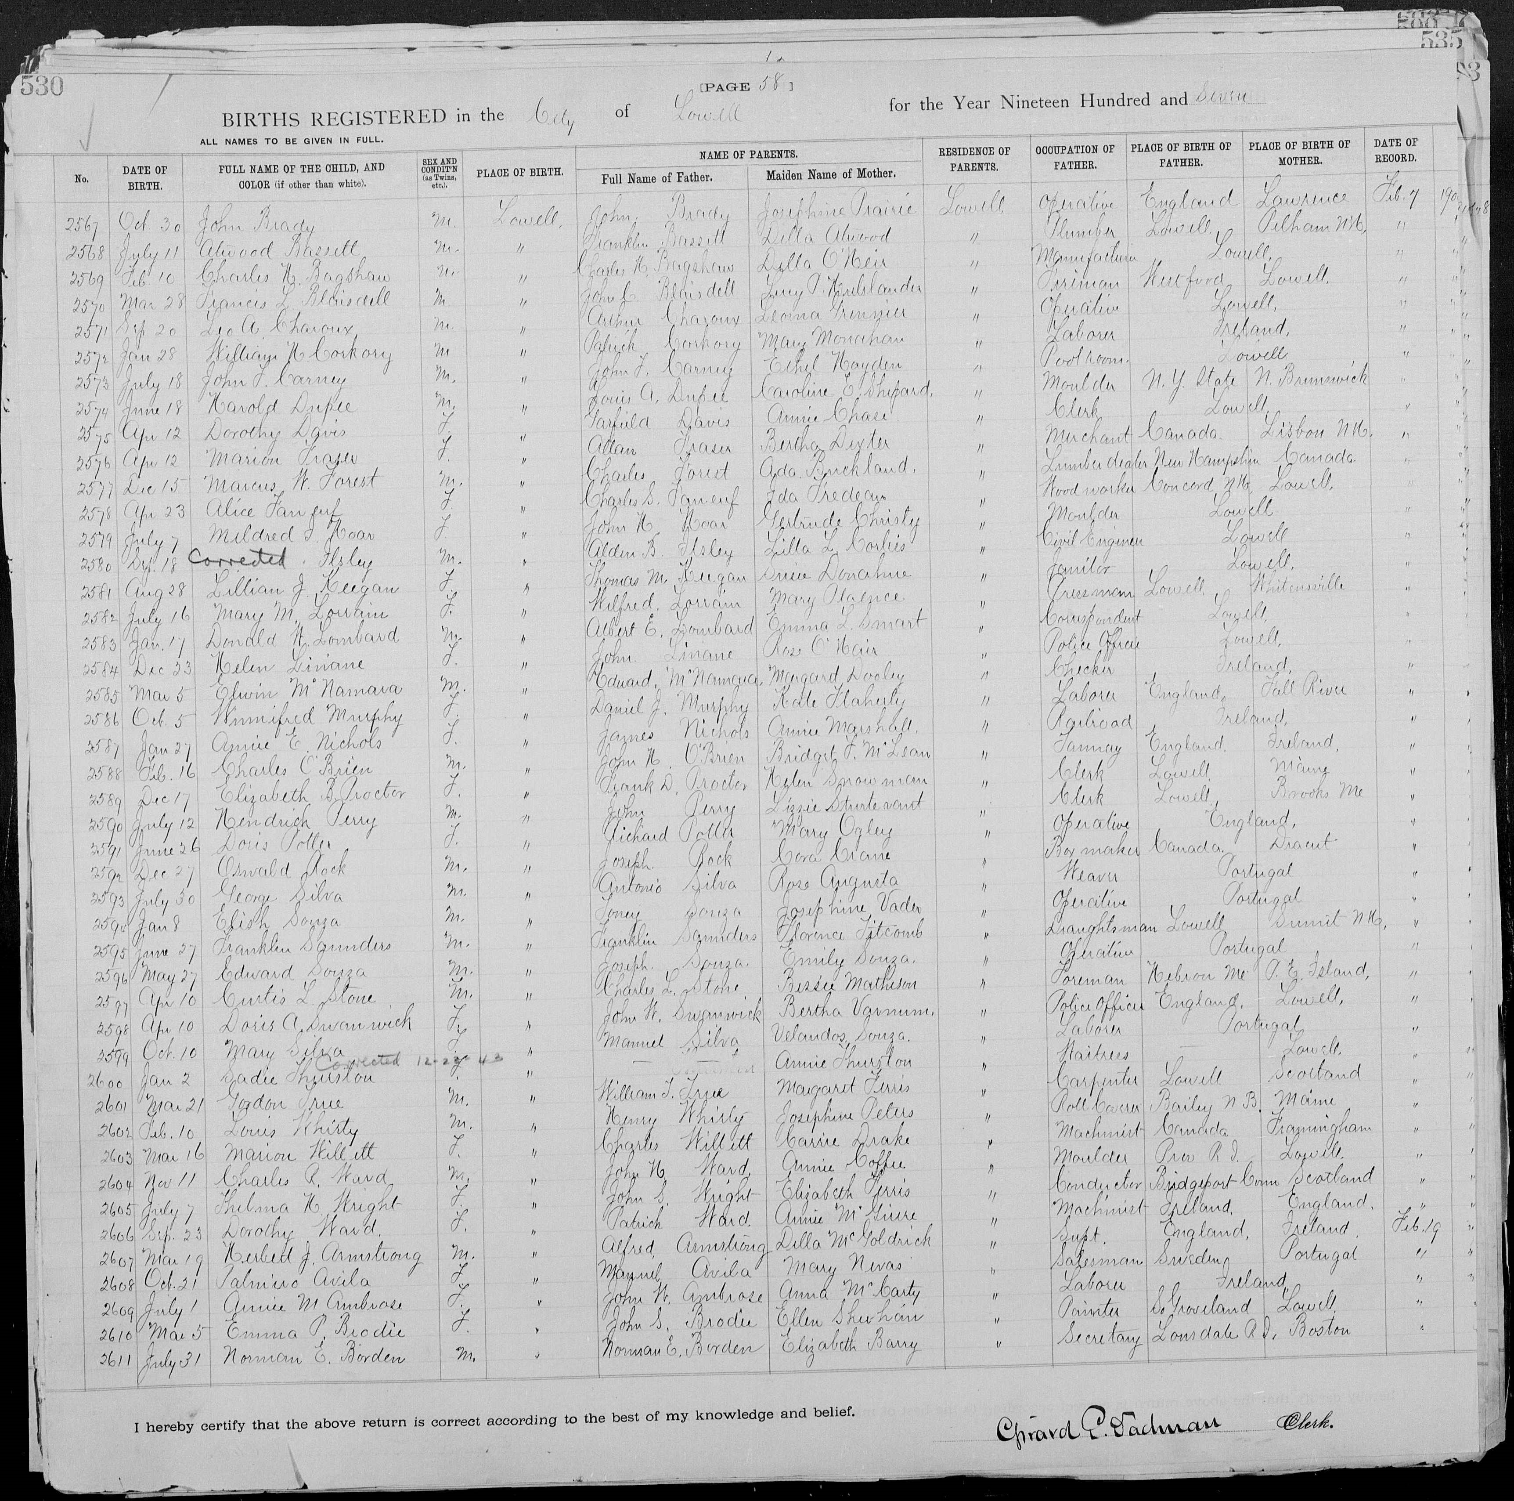 530
535
[PAGE 58]
BIRTHS REGISTERED in the City of Lowell for the Year Nineteen Hundred and Seven
ALL NAMES TO BE GIVEN IN FULL.
No. DATE OF BIRTH. FULL NAME OF THE CHILD, AND COLOR (if other than white). SEX AND CONDIT'N (as Twins, etc.). PLACE OF BIRTH. NAME OF PARENTS. Full Name of Father. Maiden Name of Mother. RESIDENCE OF PARENTS. OCCUPATION OF FATHER. PLACE OF BIRTH OF FATHER. PLACE OF BIRTH OF MOTHER. DATE OF RECORD.
2567 Oct. 30 John Brady M. Lowell, John Brady Josephine Prairie Lowell Operative England Lawrence Feb. 7
2568 July 11 Atwood Bassett M. " Franklin Bassett Lilla Atwood " Plumber Lowell, Pelham N.H, "
2569 Feb. 10 Charles H. Bagshaw M. " Charles H. Bagshaw Della O'Heir " Lowell, "
2570 Mar 28 Francis L. Blaisdell M " John C. Blaisdell Lucy " Fireman Westford Lowell. "
2571 Sep. 20 Leo A. Charoux M. " Arthur Charoux Leona " Operative Lowell, "
2572 Jan 28 William H. Corkory M " Patrick Corkory Mary Monahan " Laborer Ireland, "
2573 July 18 John F. Carney M. " John F. Carney Ethel Hayden " Poolroom. Lowell "
2574 June 18 Harold Dupee M. " Louis A. Dupee Caroline E. Shepard, " Moulder N. Y. State N. Brunswick "
2575 Apr 12 Dorothy Davis F. " Garfield Davis Annie Chase " Clerk Lowell, "
2576 Apr 12 Marion Fraser F. " Allan Fraser Bertha Dexter " Merchant Canada. Lisbon N.H. "
2577 Dec 15 Marcus W. Forest M. " Charles Forest Ada Brickland, " Lumber dealer New Hampshire Canada "
2578 Apr 23 Alice Faneuf F " Charles S. Faneuf Ida Tredeau " Woodworker Concord N.H, Lowell, "
2579 July 7 Mildred I. Hoar F. " John H. Hoar Gertrude Christy " Moulder Lowell "
2580 Sep. 18 Corrected Ilsley M. " Alden B. Ilsley Lilla L. Corliss " Civil Engineer Lowell "
2581 Aug 28 Lillian J. Keegan F. " Thomas M. Keegan Susie Donahue " Janitor Lowell, "
2582 July 16 Mary M. Lorrain F. " Wilfred, Lorrain Mary " Pressman Lowell Whitinsville "
2583 Jan. 17 Donald H. Lombard M. " Albert E. Lombard Emma L. Smart " Correspondent Lowell, "
2584 Dec 23 Helen Linane F. " John Linane Rose O'Hair " Police Officer Lowell, "
2585 Mar 5 Elwin McNamara M. " Edward, McNamara, Margard Dooley " Checker Ireland, "
2586 Oct. 5 Winnifred Murphy F " Daniel J. Murphy Kate Flaherty " Laborer England, Fall River "
2587 Jan 27 Annie E. Nichols F. " James Nichols Annie Marshall. " Railroad Ireland, "
2588 Feb. 16 Charles O'Brien M. " John H. O'Brien Bridget F. McLean " Tannery England. Ireland, "
2589 Dec 17 Elizabeth B. Proctor F. " Frank D. Proctor Helen Snowman " Clerk Lowell, Maine "
2590 July 12 Hendrick Perry M. " John Perry Lizzie Sturtevant " Clerk Lowell, Brooks Me "
2591 June 26 Doris Potter F. " Richard Potter Mary Ogley " Operative England, "
2592 Dec 27 Oswald Rock M. " Joseph Rock Cora Crane " Box maker Canada. Dracut "
2593 July 30 George Silva M. " Antonio Silva Rose Augusta " Weaver Portugal "
2594 Jan 8 Elish Souza M. " Toney Souza Josephine Vader " Operative Portugal "
2595 June 27 Franklin Saunders M. " Franklin Saunders Florence Titcomb " Draughtsman Lowell Sumit N.H, "
2596 May 27 Edward Souza M. " Joseph Souza. Emily Souza. " Operative Portugal "
2597 Apr 10 Curtis L. Stone M. " Charles L. Stone Bessie Mathison " Foreman Hebron Me P. E. Island, "
2598 Apr 10 Doris A. Swanwick F. " John W. Swanwick Bertha Varnum. " Police Officer England, Lowell, "
2599 Oct. 10 Mary Silva F. " Manuel Silva Velandos Souza. " Laborer Portugal "
Corrected 12-22-43
2600 Jan 2 Sadie Thurston F. " Annie Thurston Waitress Lowell, "
2601 Mar 21 Gordon True M. " William T. True Margaret Ferris " Carpenter Lowell Scotland "
2602 Feb. 10 Louis Whirty M. " Henry Whirty Josephine Peters " Roll Coverer Bailey N B. Maine "
2603 Mar 16 Marion Willett F. " Charles Willett Carrie Drake " Machinist Canada Framingham "
2604 Nov 11 Charles R. Ward M. " John H. Ward, Annie Coffee " Moulder Prov R. I. Lowell. "
2605 July 7 Thelma H. Wright F. " John S. Wright Elizabeth Ferris " Conductor Bridgeport Conn Scotland "
2606 Sep. 23 Dorothy Ward, F. " Patrick Ward. Annie McGuire " Machinist Ireland, England. "
2607 Mar 19 Herbert J. Armstrong M. " Alfred, Armstrong Della McGoldrick " Supt. England, Ireland Feb. 19
2608 Oct. 21 Palmiro Avila F " Manuel Avila Mary Nevas " Salesman Sweden Portugal "
2609 July 1 Annie M Ambrose F. " John W. Ambrose Anna McCarty " Laborer Ireland "
2610 Mar 5 Emma P. Brodie F. " John S. Brodie Ellen Sheehan " Painter So Groveland Lowell, "
2611 July 31 Norman E. Borden M. " Norman E. Borden Elizabeth Barry " Secretary Lonsdale R.I. Boston "
I hereby certify that the above return is correct according to the best of my knowledge and belief.
Girard P. Dadman Clerk.